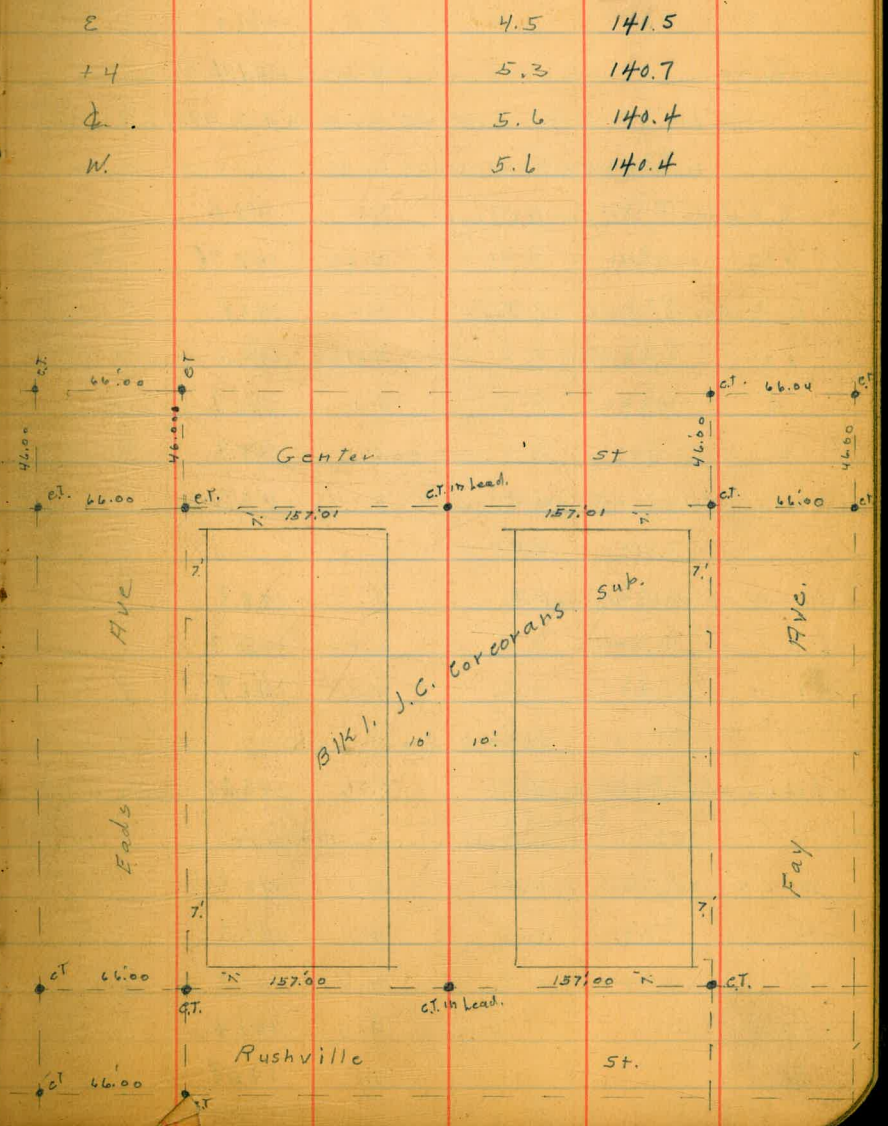 E 4.5 141.5
+4 5.3 140.7
℄. 5.6 140.4
W. 5.6 140.4
C.T. 66.00 C.T. C.T. 66.04 C.T.
46.00 46.00 46.00 46.00
Genter St
C.T. 66.00 C.T. C.T. in Lead. C.T. 66.00 C.T.
7' 157.01 157.01 7'
7' 7'
Eads Ave
Fay Ave.
Blk 1. J.C. Corcorans Sub.
10' 10'
7' 7'
C.T. 66.00 7' 157.00 157.00 7' C.T.
C.T. C.T. in Lead.
Rushville St.
C.T. 66.00
C.T.